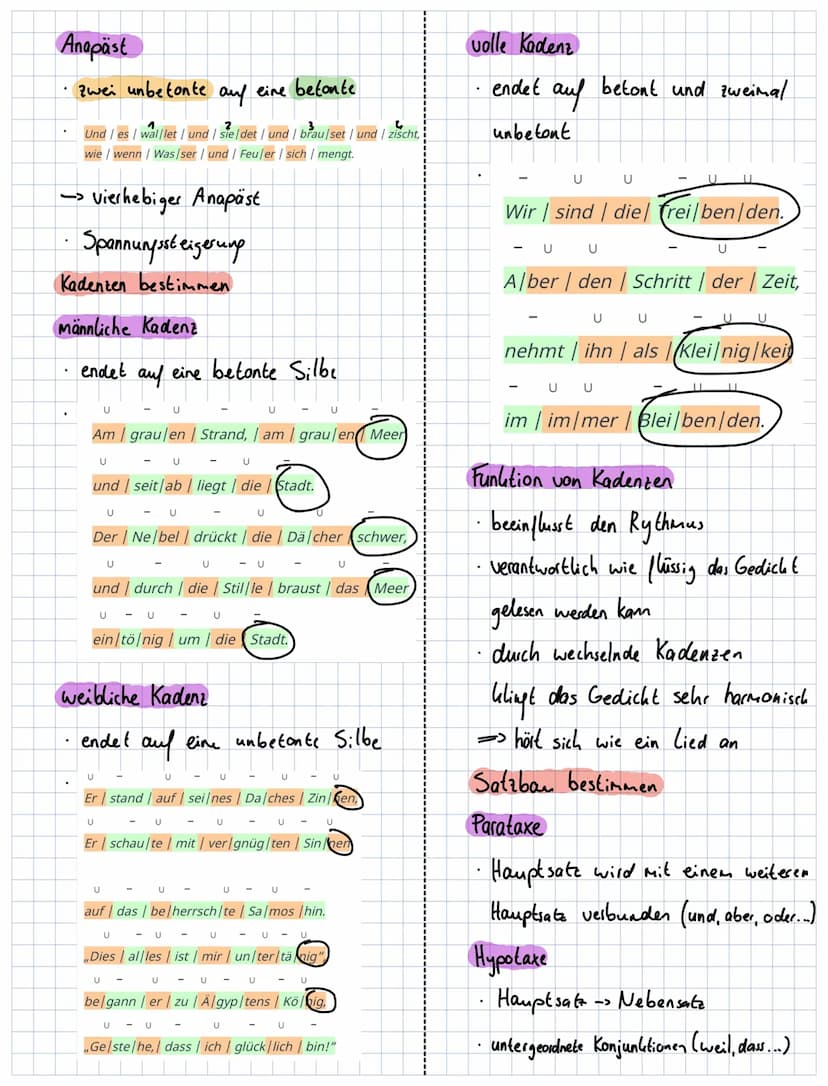 Anapäst
· zwei unbetonte auf eine betonte
1 2 3 4
· Und | es | wal|let | und | sie|det | und | brau|set | und | zischt,
wie | wenn | Was|ser | und | Feu|er | sich | mengt.
–> vierhebiger Anapäst
· Spannungssteigerung
Kadenzen bestimmen
männliche Kadenz
· endet auf eine betonte Silbe
∪ – ∪ – ∪ – ∪ –
· Am | grau|en | Strand, | am | grau|en | Meer
∪ – ∪ – ∪ –
und | seit|ab | liegt | die | Stadt.
∪ – ∪ – ∪ – ∪ –
Der | Ne|bel | drückt | die | Dä|cher | schwer,
∪ – ∪ – ∪ – ∪ –
und | durch | die | Stil|le | braust | das | Meer
∪ – ∪ – ∪ –
ein|tö|nig | um | die | Stadt.
weibliche Kadenz
· endet auf eine unbetonte Silbe
∪ – ∪ – ∪ – ∪ – ∪
· Er | stand | auf | sei|nes | Da|ches | Zin|nen,
∪ – ∪ – ∪ – ∪ – ∪
Er | schau|te | mit | ver|gnüg|ten | Sin|nen
∪ – ∪ – ∪ – ∪ –
auf | das | be|herrsch|te | Sa|mos | hin.
∪ – ∪ – ∪ – ∪ – ∪
„Dies | al|les | ist | mir | un|ter|tä|nig“,
∪ – ∪ – ∪ – ∪ – ∪
be|gann | er | zu | Ä|gyp|tens | Kö|nig,
∪ – ∪ – ∪ – ∪ –
„Ge|ste|he,| dass | ich | glück|lich | bin!“
volle Kadenz
· endet auf betont und zweimal
unbetont
– ∪ ∪ – ∪ ∪
· Wir | sind | die | Trei|ben|den.
– ∪ ∪ – ∪ –
A|ber | den | Schritt | der | Zeit,
– ∪ ∪ – ∪ ∪
nehmt | ihn | als | Klei|nig|keit
– ∪ ∪ – ∪ ∪
im | im|mer | Blei|ben|den.
Funktion von Kadenzen
· beeinflusst den Rythmus
· verantwortlich wie flüssig das Gedicht
gelesen werden kann
· durch wechselnde Kadenzen
klingt das Gedicht sehr harmonisch
=> hört sich wie ein Lied an
Satzbau bestimmen
Parataxe
· Hauptsatz wird mit einem weiteren
Hauptsatz verbunden (und, aber, oder...)
Hypotaxe
· Hauptsatz –> Nebensatz
· untergeordnete Konjunktionen (weil, dass...)